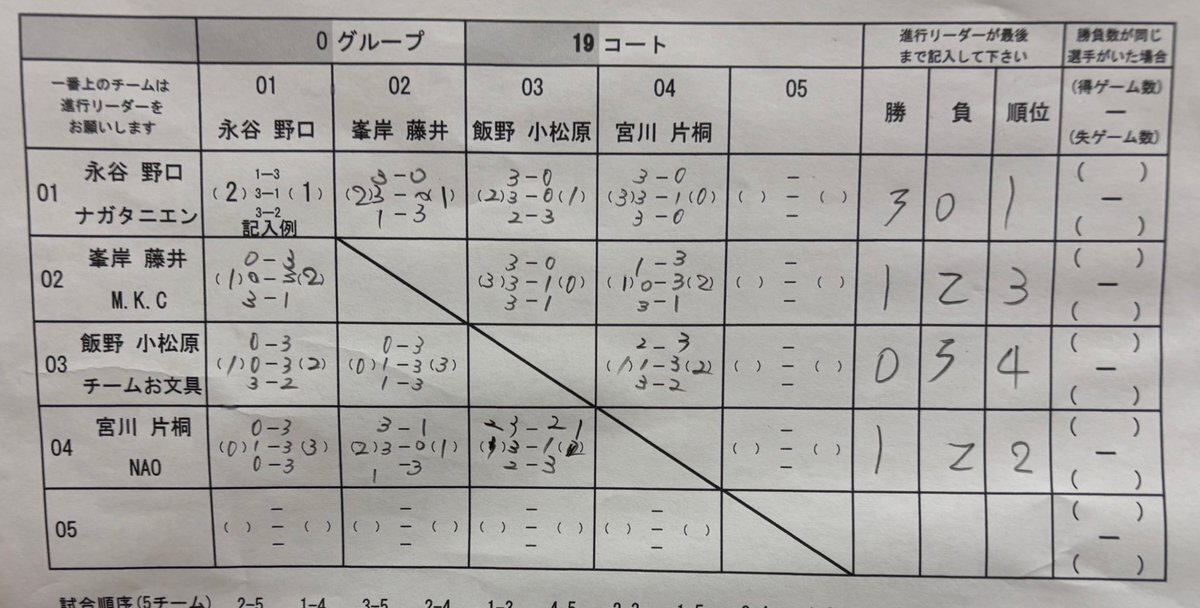 0 グループ 19 コート 進行リーダーが最後 勝負数が同じ
まで記入して下さい 選手がいた場合
一番上のチームは 01 02 03 04 05 勝 負 順位 (得ゲーム数)
進行リーダーを ー
お願いします 永谷 野口 峯岸 藤井 飯野 小松原 宮川 片桐 (失ゲーム数)
永谷 野口 1−3 3−0 3−0 3−0 − ( )
01 (2)3−1(1) (2)3− (1) (2)3−0(1) (3)3−1(0) ( ) − ( ) 3 0 1 −
ナガタニエン 3−2 1−3 2−3 3−0 − ( )
記入例
峯岸 藤井 0−3 3−0 1−3 − ( )
02 (1)0−3(2) (3)3−1(0) (1)0−3(2) ( ) − ( ) 1 2 3 −
M.K.C 3−1 3−1 3−1 − ( )
飯野 小松原 0−3 0−3 2−3 − ( )
03 (1)0−3(2) (0)1−3(3) (1)1−3(2) ( ) − ( ) 0 3 4 −
チームお文具 3−2 1−3 3−2 − ( )
宮川 片桐 0−3 3−1 3−2 − ( )
04 (0)1−3(3) (2)3−0(1) 3−1 ( ) − ( ) 1 2 2 −
NAO 0−3 1−3 2−3 − ( )
− − − − ( )
05 ( ) − ( ) ( ) − ( ) ( ) − ( ) ( ) − ( ) −
− − − − ( )
試合順序(5チーム) 2-5 1-4 3-5 2-4 1-3 4-5